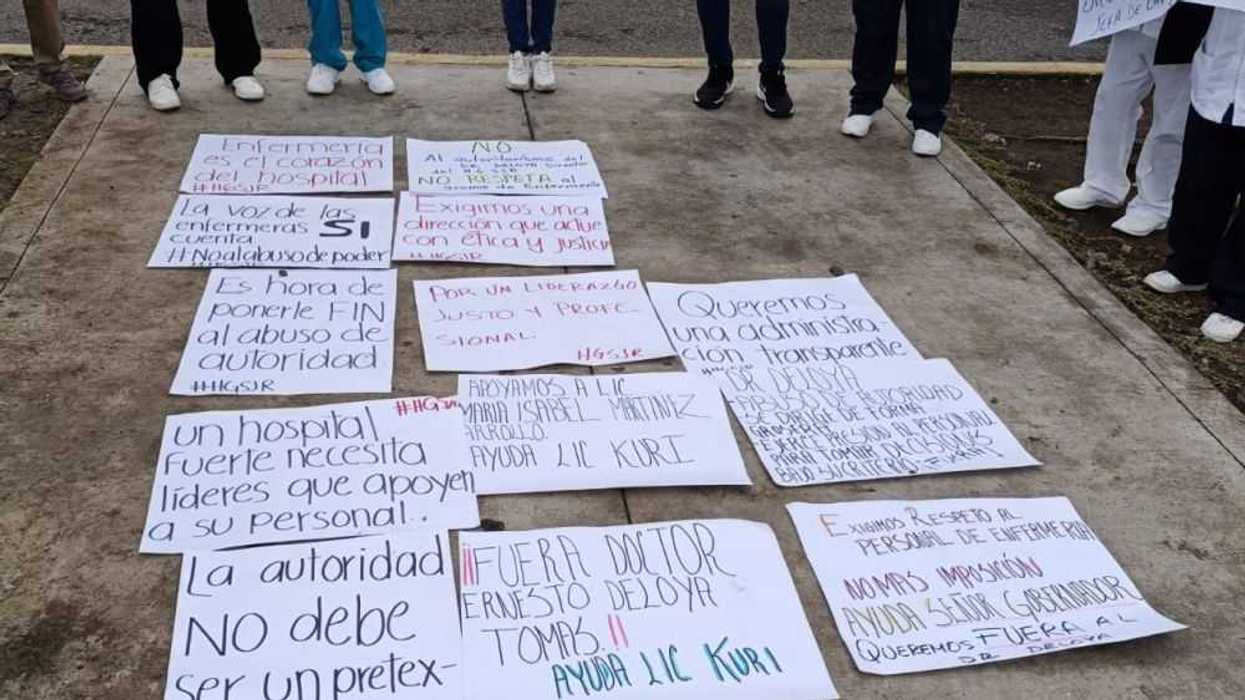 Enfermería
es el corazón
del hospital
#HGSJR
NO
Al autoritarismo del
DR DELOYA Director
del H G SJR
NO RESPETA al
Gremio de Enfermería
La voz de las
enfermeras SI
cuenta
#Noalabusodepoder
#HGSJR
Exigimos una
dirección que actue
con ética y justicia
#HGSJR
Es hora de
ponerle FIN
al abuso de
autoridad
#HGSJR
POR UN LIDERAZGO
JUSTO Y PROFE-
SIONAL.
HGSJR
Queremos
una administra-
ción transparente
DR DELOYA
ABUSO DE AUTORIDAD
SE DIRIGE DE FORMA
EJERCE PRESION AL PERSONAL
PARA TOMAR DECISIONES
BAJO SU CRITERIO
FUERA
#HGSJR
un hospital
fuerte necesita
líderes que apoyen
a su personal..
APOYAMOS A LIC
MARIA ISABEL MARTINEZ
ARROLLO.
AYUDA LIC KURI
La autoridad
NO debe
ser un pretex-
¡¡FUERA DOCTOR
ERNESTO DELOYA
TOMAS.!!
AYUDA LIC KURI
EXIGIMOS RESPETO AL
PERSONAL DE ENFERMERIA
NO MAS IMPOSICIÓN
AYUDA SEÑOR GOBERNADOR
QUEREMOS FUERA AL
DR DELOYA